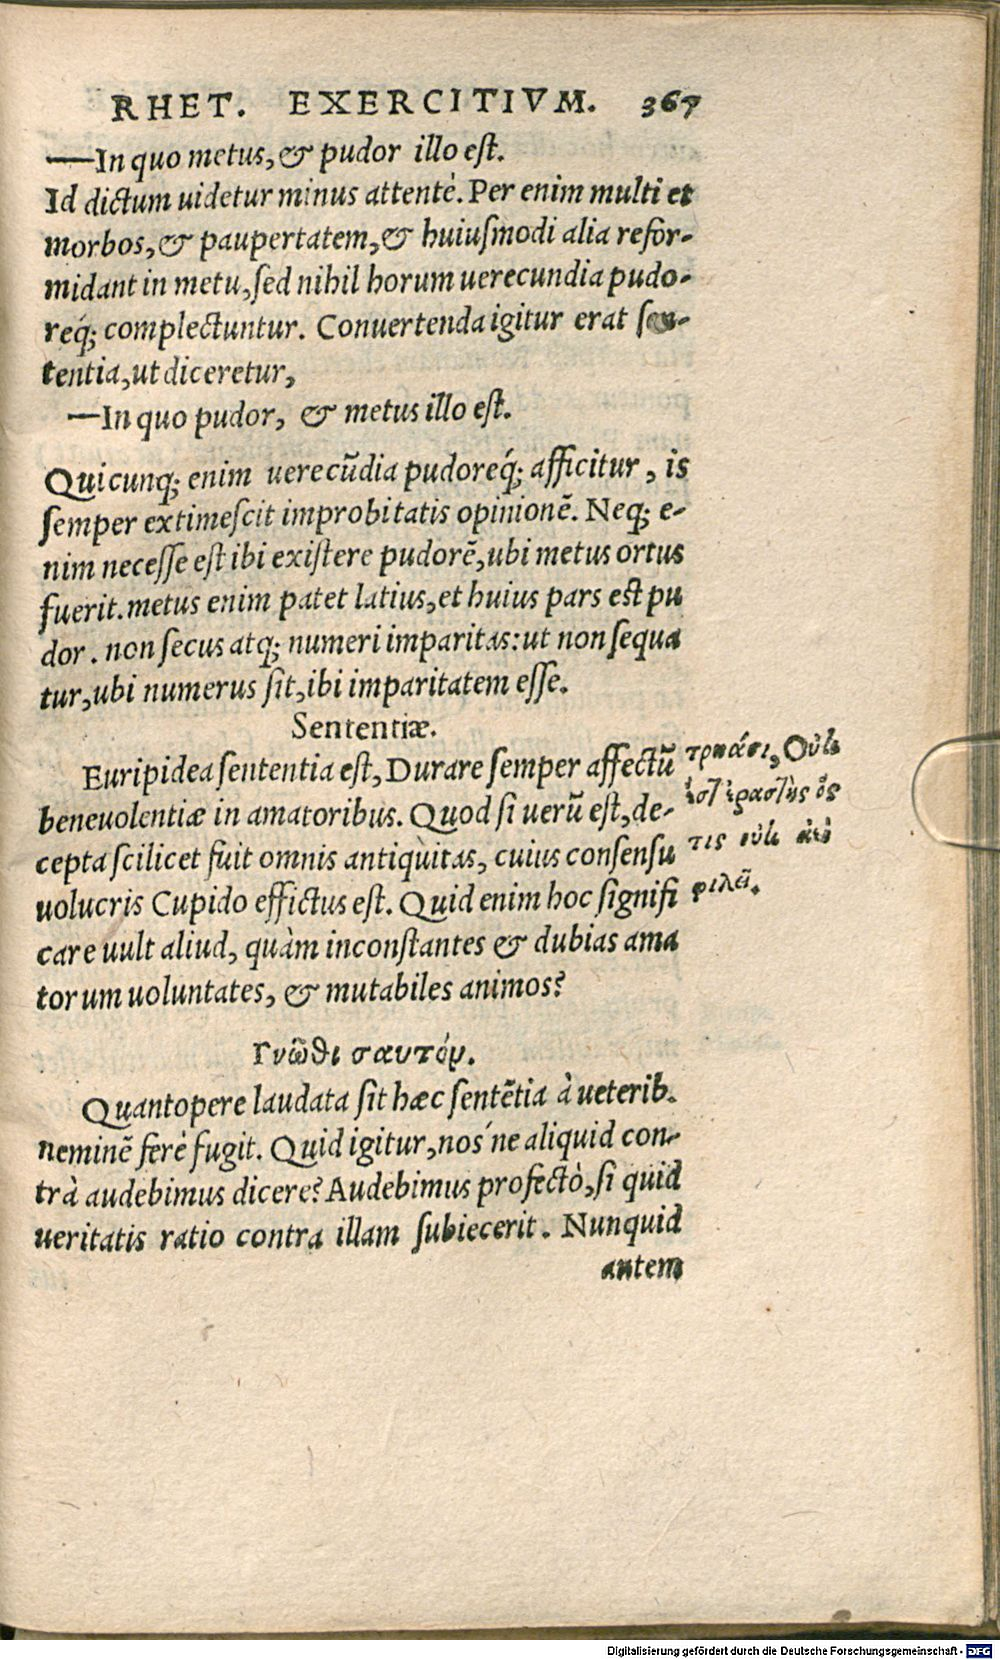 RHET. EXERCITIVM. 367
—In quo metus, & pudor illo est.
Id dictum uidetur minus attentè. Per enim multi et
morbos, & paupertatem, & huiusmodi alia refor-
midant in metu, sed nihil horum uerecundia pudo-
req́; complectuntur. Conuertenda igitur erat sen-
tentia, ut diceretur,
—In quo pudor, & metus illo est.
Quicunq; enim uerecũdia pudoreq́; afficitur, is
semper extimescit improbitatis opinionẽ. Neq; e-
nim necesse est ibi existere pudorẽ, ubi metus ortus
fuerit. metus enim patet latius, et huius pars est pu
dor. non secus atq; numeri imparitas: ut non sequa
tur, ubi numerus sit, ibi imparitatem esse.
Sententiæ.
Euripidea sententia est, Durare semper affectũ
beneuolentiæ in amatoribus. Quod si uerũ est, de-
cepta scilicet fuit omnis antiquitas, cuius consensu
uolucris Cupido effictus est. Quid enim hoc signifi
care uult aliud, quàm inconstantes & dubias ama
torum uoluntates, & mutabiles animos?
τρῳάσι, Οὐκ
ἐστ' ἐραστὴς ὅς
τις οὐκ ἀεὶ
φιλεῖ.
Γνῶθι σαυτόν.
Quantopere laudata sit hæc sentẽtia à ueterib.
neminẽ ferè fugit. Quid igitur, nos'ne aliquid con-
trà audebimus dicere? Audebimus profectò, si quid
ueritatis ratio contra illam subiecerit. Nunquid
antem
Digitalisierung gefördert durch die Deutsche Forschungsgemeinschaft - DFG